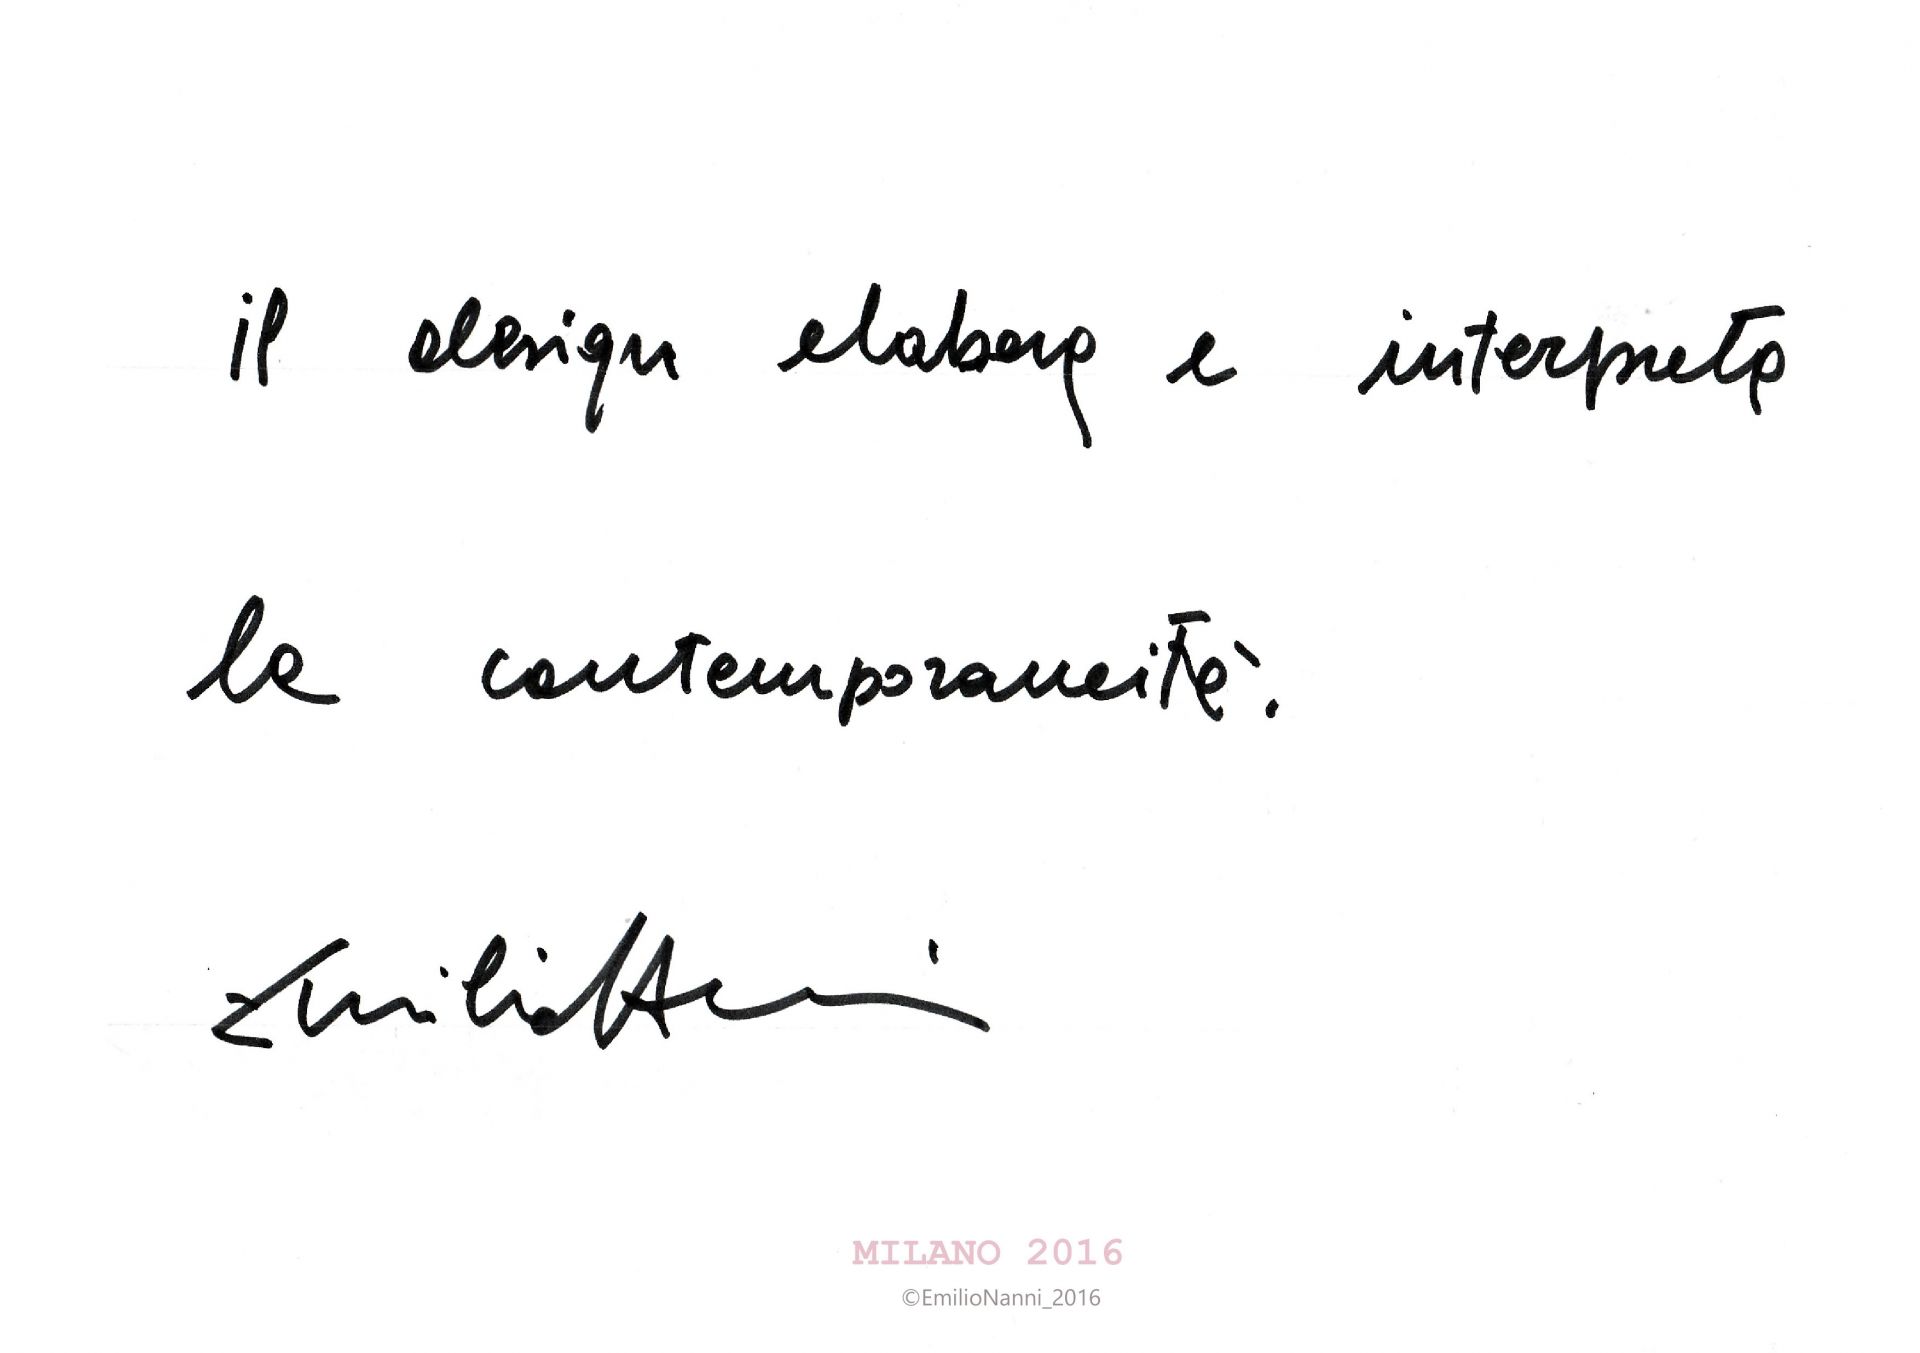 il design elabora e interpreta
la contemporaneità.
Emilio Nanni
MILANO 2016
©EmilioNanni_2016